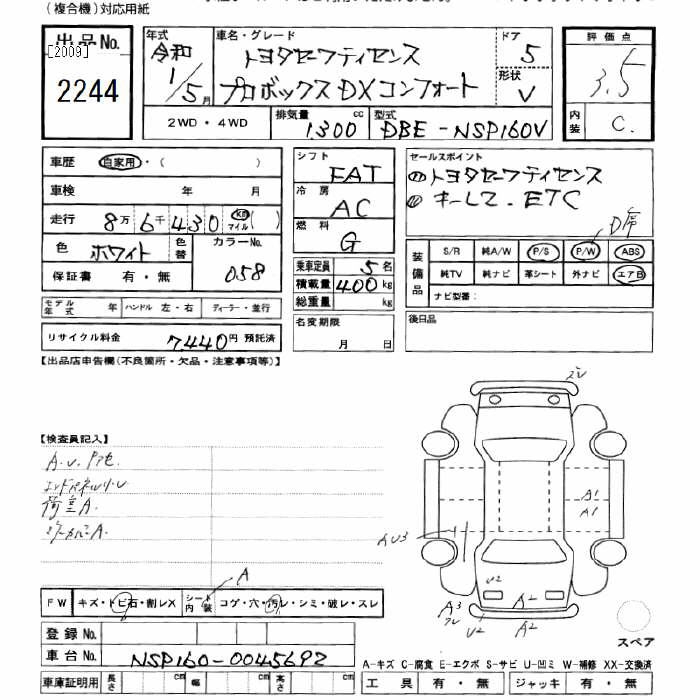 (複合機)対応用紙
出品No.
[2009]
2244
年式
令和
1/5月
車名・グレード
トヨタセーフティセンス
プロボックスDXコンフォート
ドア
5
形状
V
評価点
3.5
内装
C.
2WD・4WD
排気量
1300 cc
型式
DBE-NSP160V
車歴
自家用・( )
車検 年 月
走行 8万6千430 km マイル( )
色 ホワイト
色替
カラーNo.
058
保証書 有・無
モデル年式 年 ハンドル 左・右 ディーラー・並行
リサイクル料金 7,440円 預託済
シフト
FAT
冷房
AC
燃料
G
乗車定員 5名
積載量 400kg
総重量 kg
名変期限
月 日
セールスポイント
①トヨタセーフティセンス
②キーレス.ETC
D席
装備品
S/R 純A/W P/S P/W ABS
純TV 純ナビ 革シート 外ナビ エアB
ナビ型番:
後日品
【出品店申告欄(不良箇所・欠品・注意事項等)】
【検査員記入】
A.U.
荷室A.
A
FW
キズ・トビ石・割レX
シート内装
コゲ・穴・汚レ・シミ・破レ・スレ
登録No.
車台No.
NSP160-0045692
車庫証明用 長さ cm 幅 cm 高さ cm
A1
A1
AU3
U2
A2
A3
U2
A2
スペア
A-キズ C-腐食 E-エクボ S-サビ U-凹ミ W-補修 XX-交換済
工具 有・無 ジャッキ 有・無